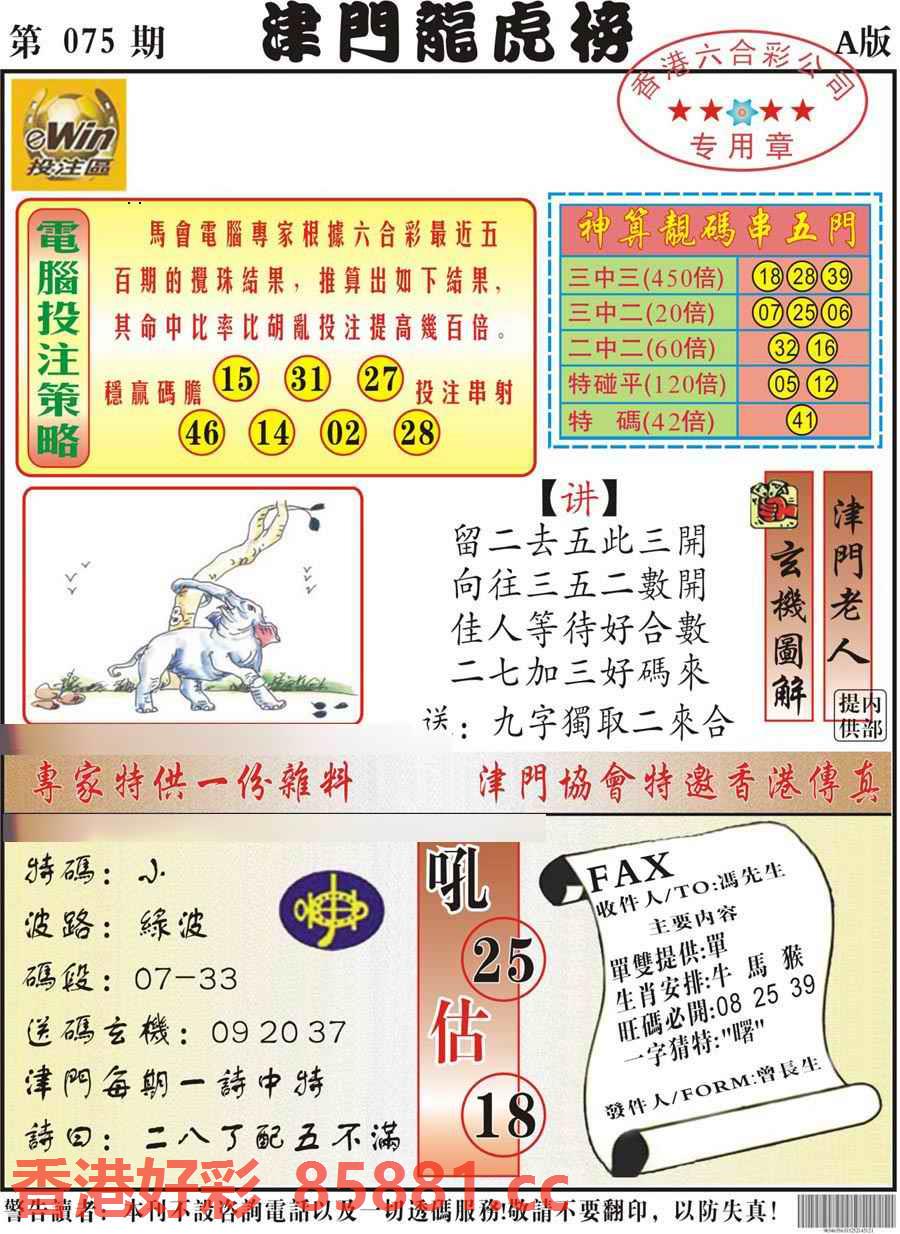 第 075 期
津門龍虎榜
A版
香港六合彩公司
专用章
eWin
投注區
電腦投注策略
馬會電腦專家根據六合彩最近五
百期的攪珠結果，推算出如下結果，
其命中比率比胡亂投注提高幾百倍。
穩贏碼膽 15 31 27 投注串射
46 14 02 28
神算靚碼串五門
三中三(450倍) 18 28 39
三中二(20倍) 07 25 06
二中二(60倍) 32 16
特碰平(120倍) 05 12
特 碼(42倍) 41
【讲】
留二去五此三開
向往三五二數開
佳人等待好合數
二七加三好碼來
送：九字獨取二來合
玄機圖解
津門老人
提供
内部
專家特供一份雜料
津門協會特邀香港傳真
特碼：小
波路：綠波
碼段：07-33
送碼玄機：09 20 37
津門每期一詩中特
詩曰：二八了配五不滿
吼
25
估
18
FAX
收件人/TO:馮先生
主要内容
單雙提供:單
生肖安排:牛 馬 猴
旺碼必開:08 25 39
一字猜特:"曙"
發件人/FORM:曾長生
香港好彩 85881.cc
警告讀者：本刊不設咨詢電話以及一切透碼服務!敬請不要翻印，以防失真!